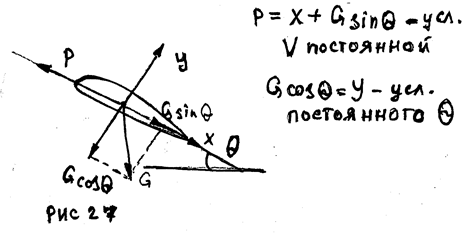 P = X + G sinθ - усл.
V постоянной
G cosθ = У - усл.
постоянного θ
P
У
G sinθ
X
θ
G cosθ
G
рис 27